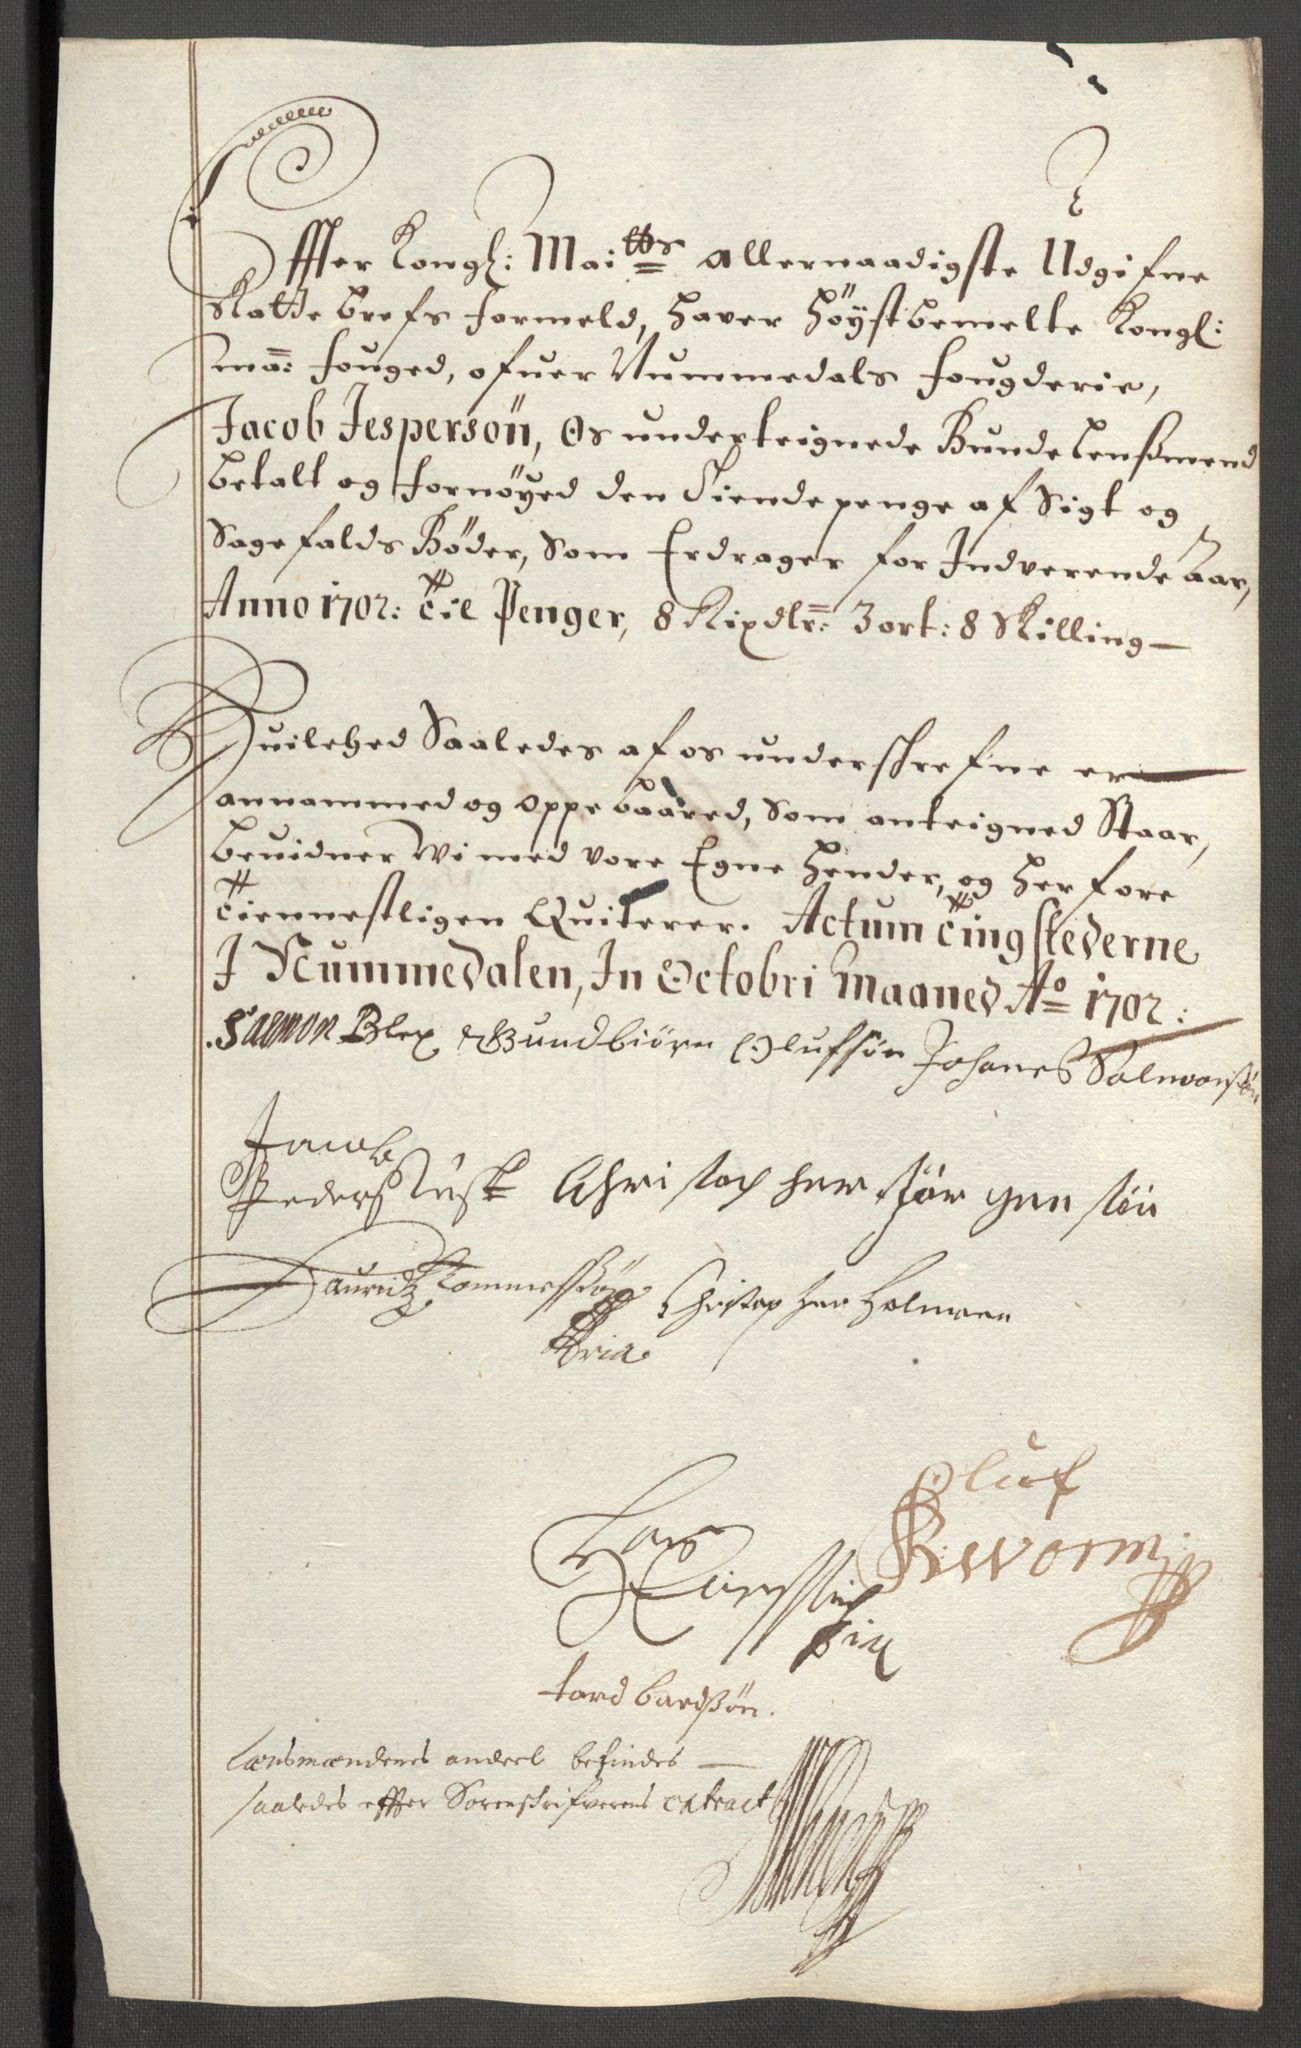 Effter Kongl: Mai^tts allernaadigste Udgifne
Skatte brefs formeld, haver höystbemelte Kongl:
Ma: fouged, ofuer Nummedals fougderie,
Jacob Jespersön, Os underteignede Bunde lensmend
betalt og fornöyed den Tiende penge af Sigt og
Sagefalds Bøder, Som Erdrager for Indverende Aar,
Anno 1702: til Penger, 8 Rixdlr: 3 ort: 8 Skilling —
Huilched Saaledes af os underskrefne er
annammed og oppebaared, Som anteigned Staar,
bevidner Wi med vore Egne hender, og her fore
tiennestligen Quiterer. Actum tingstederne
I Nummedalen, In Octobri Maaned Ao 1702:
Samon Blex Gundbiörn Olufsön Johanes Salmonsön
Jacob
Peders Christopher Jörgensön
Lauritz Tommessön Christopher Holmen
Oluf
Lars R: Worm:
tord bardsön.
Lænsmændenes andeel befindes —
saaledes effter Sorenskrifverens extract